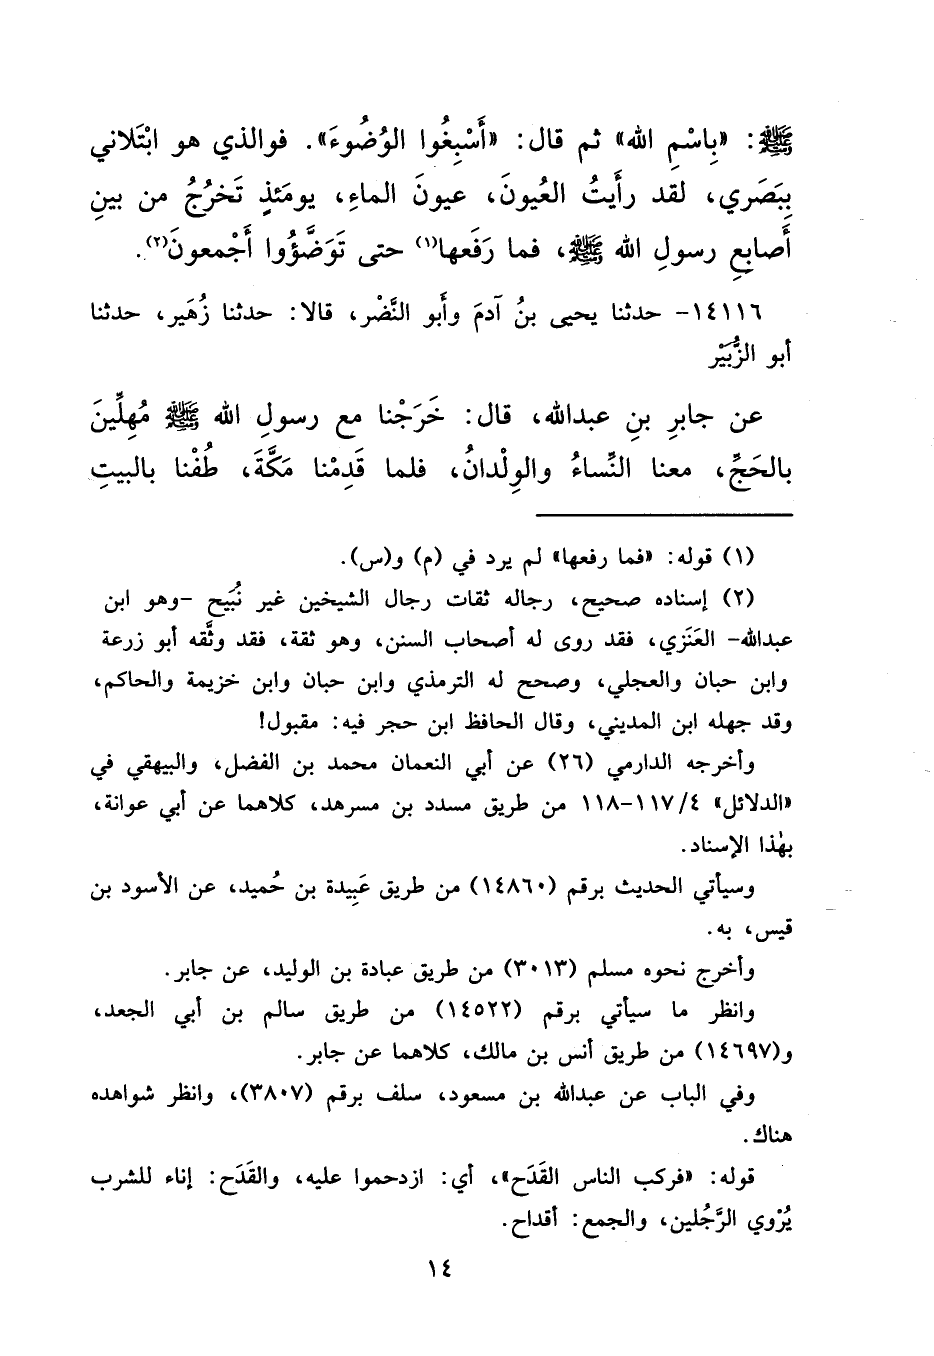 ﷺ: «بِاسْمِ الله» ثم قال: «أَسْبِغُوا الوُضُوءَ». فوالذي هو ابْتَلاني
بِبَصَري، لقد رأَيتُ العُيونَ، عيونَ الماءِ، يومَئذٍ تَخرُجُ من بينِ
أَصابِعِ رسولِ الله ﷺ، فما رَفَعها(١) حتى تَوَضَّؤُوا أَجْمعونَ(٢).
١٤١١٦- حدثنا يحيى بنُ آدمَ وأَبو النَّضْر، قالا: حدثنا زُهَير، حدثنا
أبو الزُّبَيْر
عن جابرِ بنِ عبدالله، قال: خَرَجْنا مع رسولِ الله ﷺ مُهِلِّينَ
بالحَجِّ، معنا النِّساءُ والوِلْدانُ، فلما قَدِمْنا مَكَّةَ، طُفْنا بالبيتِ
(١) قوله: «فما رفعها» لم يرد في (م) و(س).
(٢) إسناده صحيح، رجاله ثقات رجال الشيخين غير نُبَيح -وهو ابن
عبدالله- العَنَزي، فقد روى له أصحاب السنن، وهو ثقة، فقد وثَّقه أبو زرعة
وابن حبان والعجلي، وصحح له الترمذي وابن حبان وابن خزيمة والحاكم،
وقد جهله ابن المديني، وقال الحافظ ابن حجر فيه: مقبول!
وأخرجه الدارمي (٢٦) عن أبي النعمان محمد بن الفضل، والبيهقي في
«الدلائل» ٤/ ١١٧-١١٨ من طريق مسدد بن مسرهد، كلاهما عن أبي عوانة،
بهٰذا الإسناد.
وسيأتي الحديث برقم (١٤٨٦٠) من طريق عَبِيدة بن حُميد، عن الأسود بن
قيس، به.
وأخرج نحوه مسلم (٣٠١٣) من طريق عبادة بن الوليد، عن جابر.
وانظر ما سيأتي برقم (١٤٥٢٢) من طريق سالم بن أبي الجعد،
و(١٤٦٩٧) من طريق أنس بن مالك، كلاهما عن جابر.
وفي الباب عن عبدالله بن مسعود، سلف برقم (٣٨٠٧)، وانظر شواهده
هناك.
قوله: «فركب الناس القَدَح»، أي: ازدحموا عليه، والقَدَح: إناء للشرب
يُرْوي الرَّجُلين، والجمع: أقداح.
١٤